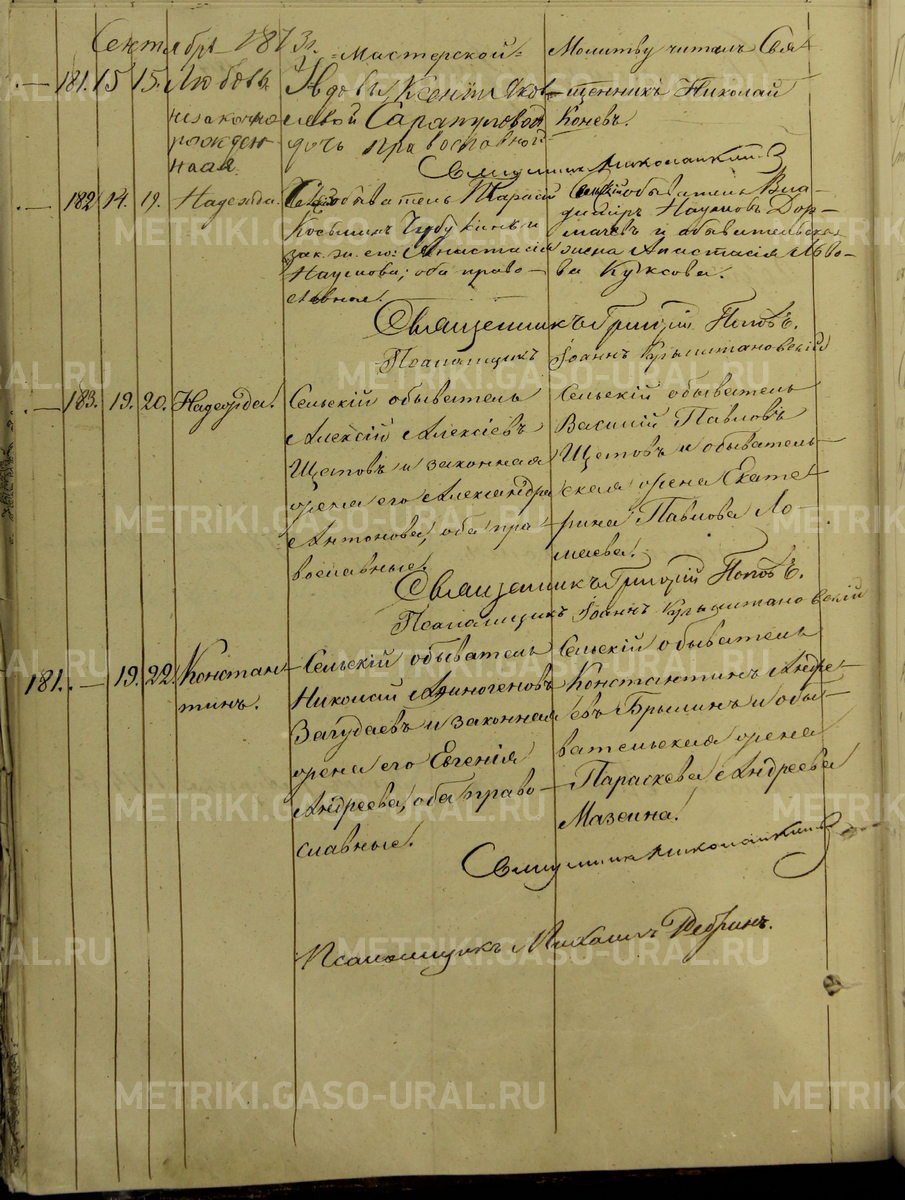 Сентябрь 1873 г.
181. 15 15. Любовь
незаконно
рожден
ная
Мастерской
вдовы Ксении Яков
левой Сарапуловой
дочь православной
Молитву читалъ Свя
щенникъ Николай
Коневъ.
182 14. 19. Надежда.
обыватель Тарасій
Косьминъ
зак. ж. его Анастасія
Наумова; оба право-
славные.
обыватель Вла-
димиръ Наумовъ Дор-
мачевъ и обывательска
жена Анастасія Льво-
ва Куксова.
Священникъ Григорій Поповъ.
Псаломщик Іоаннъ
183. 19. 20. Надежда.
Сельскій обыватель
Алексій Алексіевъ
Щетовъ и законная
жена его Александра
Антонова, оба пра-
вославные.
Сельскій обыватель
Василій Павловъ
Щетовъ и обыватель-
ская жена Екате-
рина Павлова Ло-
маева.
Священникъ Григорій Поповъ.
Псаломщикъ Іоаннъ
181. — 19. 22. Констан-
тинъ.
Сельскій обыватель
Николай Аѳиногеновъ
Загудаевъ и законная
жена его Евгенія
Андреева, оба право-
славные.
Сельскій обыватель
Константинъ Андре-
евъ Брылинъ и обы-
вательская жена
Параскева Андреева
Мазеина.
Псаломщикъ Михаилъ Ребринъ.
METRIKI.GASO-URAL.RU